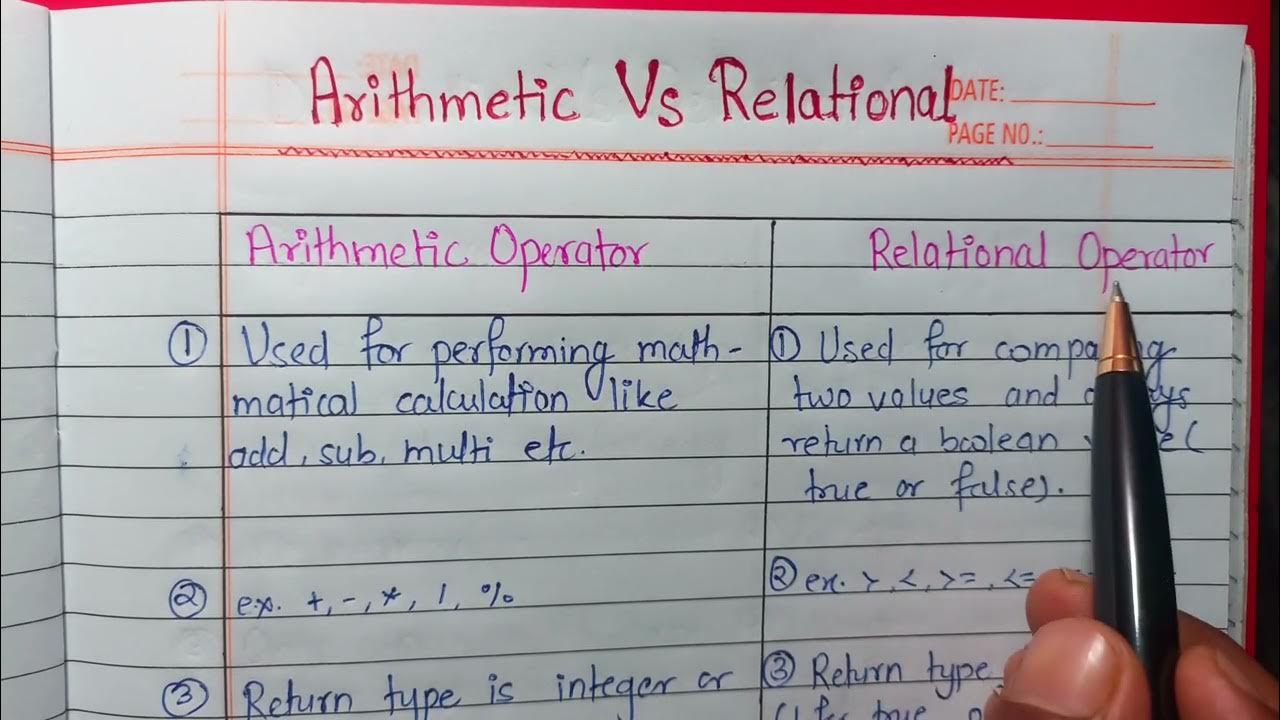 Arithmetic Vs Relational
DATE:
PAGE NO.:
Arithmetic Operator
Relational Operator
① Used for performing math-
matical calculation like
add, sub, multi etc.
① Used for
two values and
return a boolean
true or false).
② ex. +, -, *, /, %
② ex. >, <, >=, <=
③ Return type is integer or
③ Return type